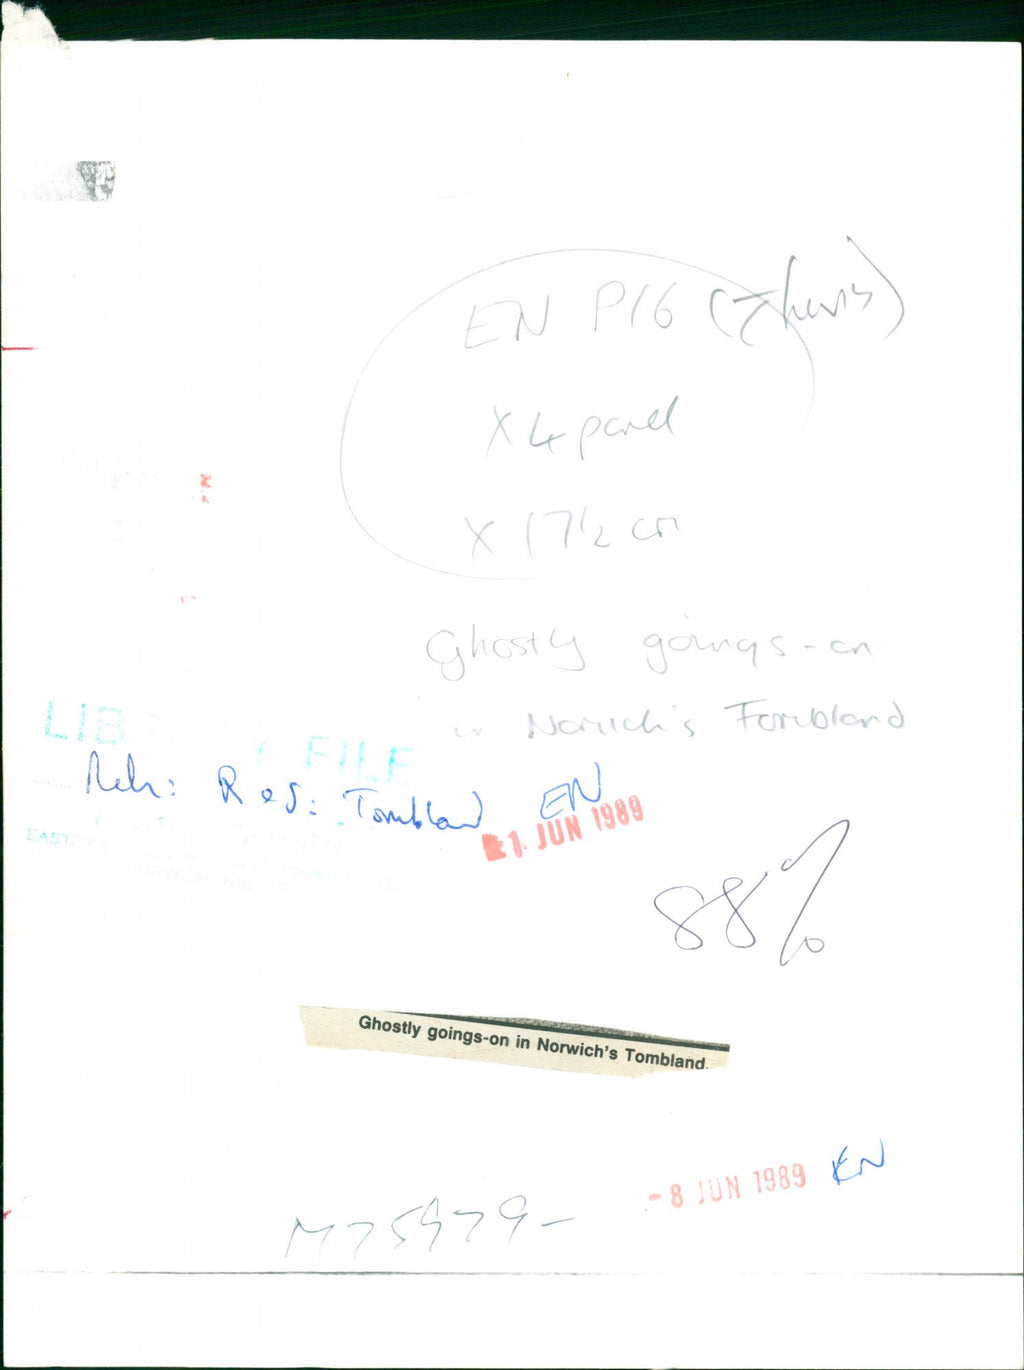 EN P16 (Thurs)
X 4 panel
X 17½ cm
Ghostly goings-on
in Norwich's Tombland
LIB Y FILE
Reh: Res: Tombland EN
1 JUN 1989
88%
Ghostly goings-on in Norwich's Tombland.
-8 JUN 1989 EN
M75979-